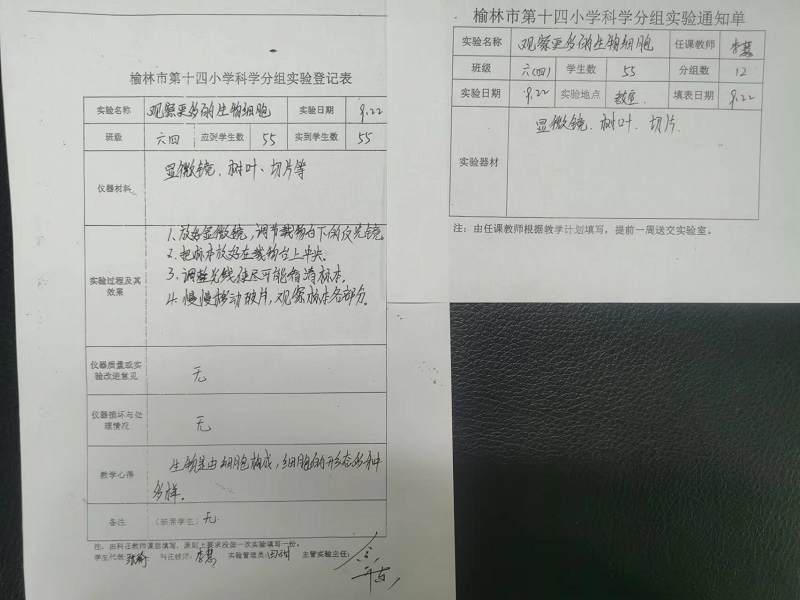 榆林市第十四小学科学分组实验登记表
实验名称 观察更多的生物细胞 实验日期 9.22
班级 六四 应到学生数 55 实到学生数 55
仪器材料 显微镜、树叶、切片等
实验过程及其效果
1.放好显微镜,调节载物台下的反光镜。
2.把标本放好在载物台上中央。
3.调整光线使尽可能看清标本。
4.慢慢移动玻片,观察标本各部分。
仪器质量或实验改进意见 无
仪器损坏与处理情况 无
教学心得 生物是由细胞构成,细胞的形态多种
多样。
备注 (缺席学生) 无
注:由科任教师课后填写,原则上要求没做一次实验填写一份。
学生代表: 科任教师:李慧 实验管理员: 主管实验主任:
榆林市第十四小学科学分组实验通知单
实验名称 观察更多的生物细胞 任课教师 李慧
班级 六(四) 学生数 55 分组数 12
实验日期 9.22 实验地点 教室 填表日期 9.22
实验器材 显微镜、树叶、切片.
注:由任课教师根据教学计划填写,提前一周送交实验室。